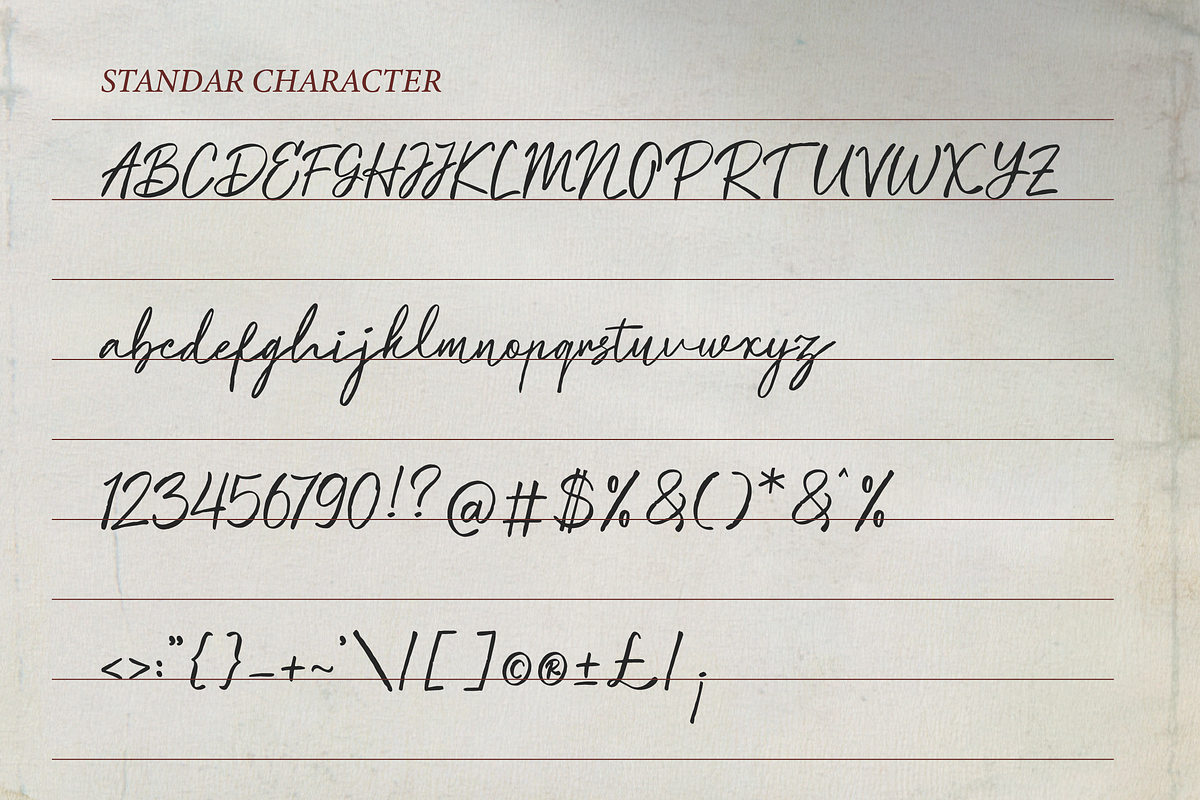 STANDAR CHARACTER
ABCDEFGHIJKLMNOPRTUVWXYZ
abcdefghijklmnopqrstuvwxyz
123456790!?@#$%&()*&^%
<>:"{}_+~'\|[]©®±£/¡